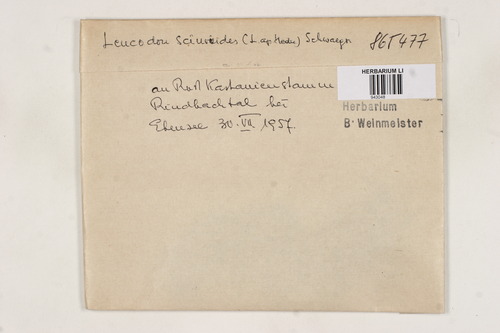 Leucodon sciuroides (L. ap Hedw.) Schwaegr 86T477
HERBARIUM LI
943048
an Roß Kastanienstamm
Rindbachtal bei
Ebensee 30. VII. 1957.
Herbarium
B. Weinmeister